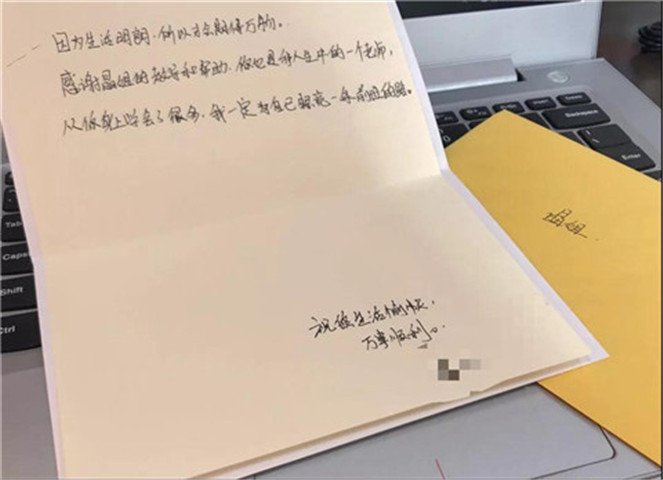 因为生活明朗,所以才会期待万物。
感谢晶姐的教导和帮助,你也是我人生中的一个老师,
从你身上学会了很多,我一定为自己照亮一条前进的路。
祝您生活愉快,
万事顺利。
晶姐
Backspace
Enter
Tab
Caps
Shift
Ctrl